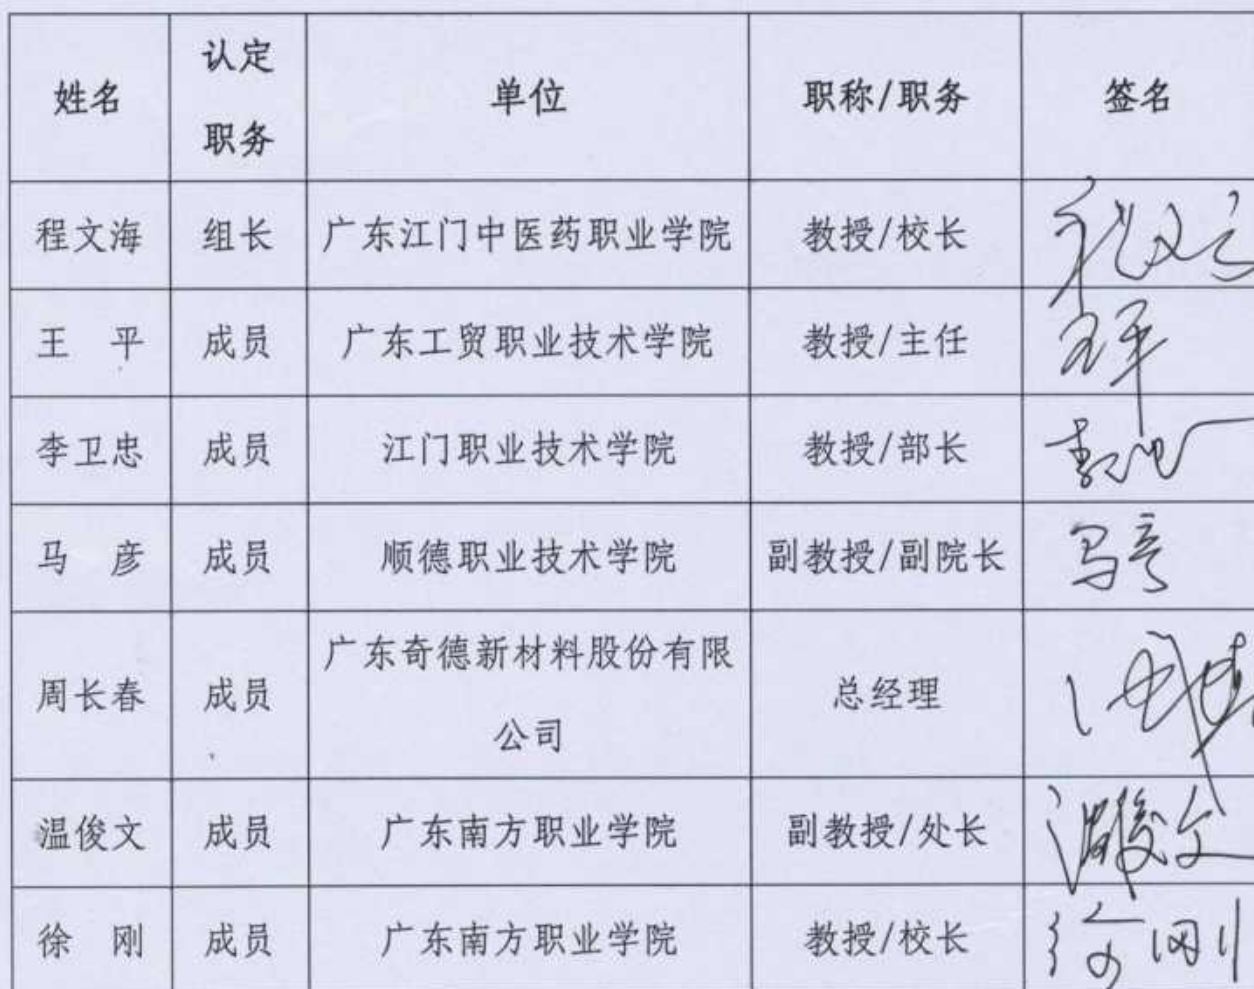 姓名 认定职务 单位 职称/职务 签名
程文海 组长 广东江门中医药职业学院 教授/校长 程文海
王 平 成员 广东工贸职业技术学院 教授/主任 王平
李卫忠 成员 江门职业技术学院 教授/部长
马 彦 成员 顺德职业技术学院 副教授/副院长 马彦
周长春 成员 广东奇德新材料股份有限公司 总经理
温俊文 成员 广东南方职业学院 副教授/处长 温俊文
徐 刚 成员 广东南方职业学院 教授/校长 徐刚